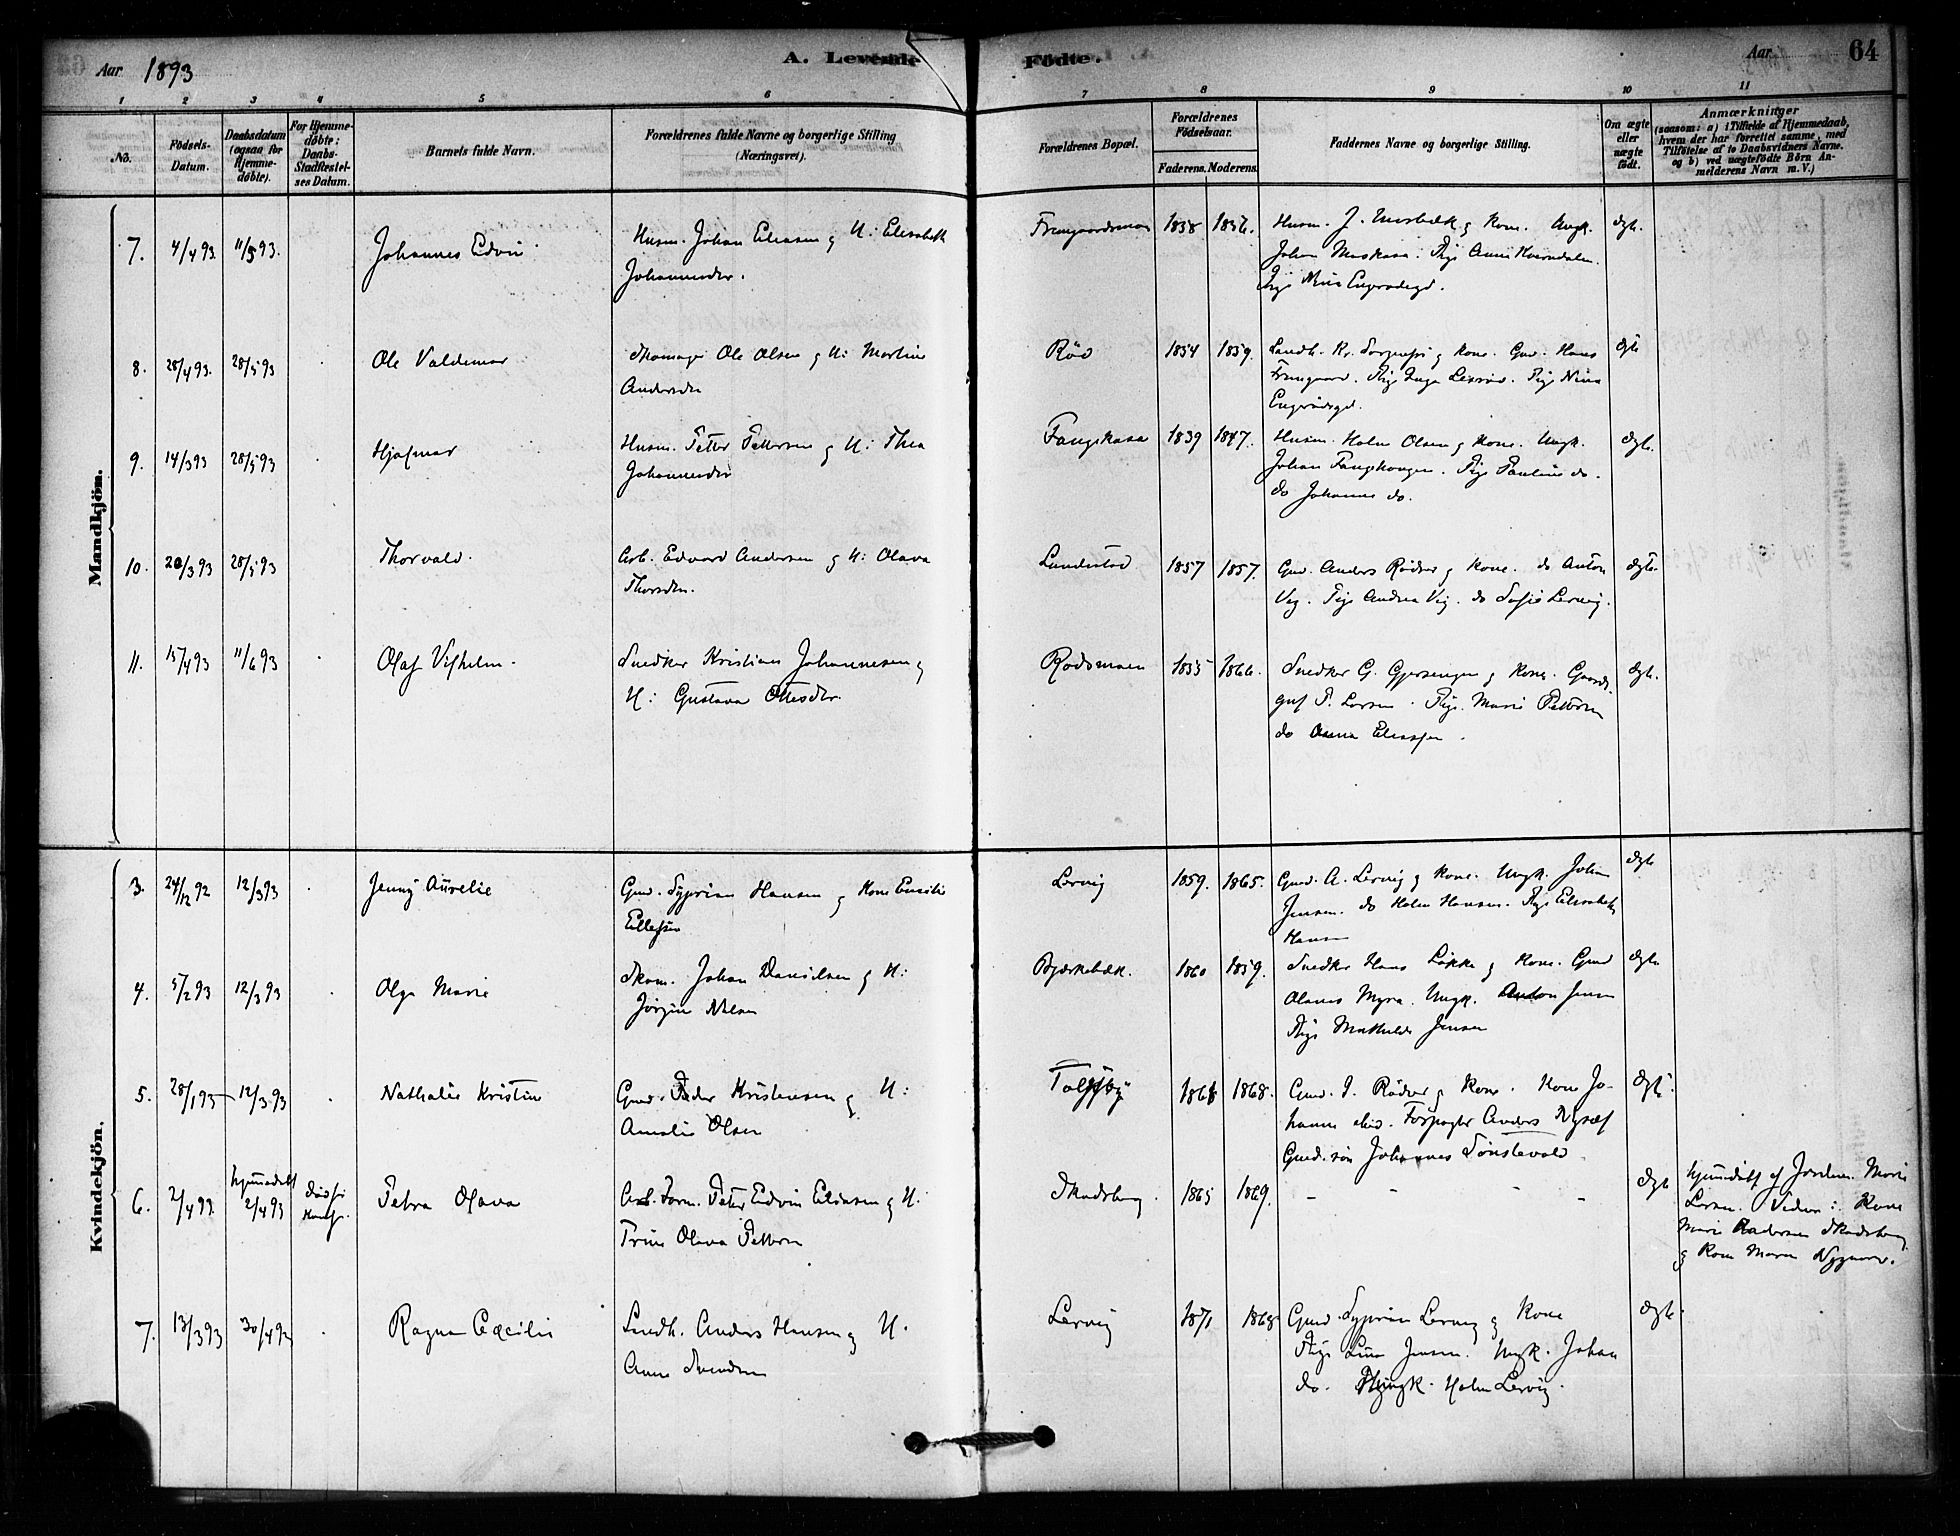 Aar 1893
A. Levende
Födte.
Aar
64
1 2 3 4 5 6 7 8 9 10 11
No.
Födsels-
Datum.
Daabsdatum
(ogsaa for
Hjemme-
døbte).
For Hjemme-
døbte:
Daabs-
Stadfestel-
ses Datum.
Barnets fulde Navn.
Forældrenes fulde Navne og borgerlige Stilling
(Næringsvei).
Forældrenes Bopæl.
Forældrenes
Födselsaar.
Faderens. Moderens.
Faddernes Navne og borgerlige Stilling.
Om ægte
eller
uægte
født.
Anmærkninger
(saasom: a) i Tilfælde af Hjemmedaab,
hvem der har forrettet samme, med
Tilföielse af to Daabsvidners Navne.
og b) ved uægtefödte Börn An-
melderens Navn m. V.)
Mandkjön.
7. 4/4 93. 11/5 93. Johannes Edvin
Husm. Johan Eliasen og H: Elisabeth
Johannesdr.
1838 1836.
Husm. J. og Kone. Ungk.
Johan Pige
Pige
ægte.
8. 28/4 93. 28/5 93 Ole Valdemar
Skomager Ole Olsen og H: Martine
Andersdr
Röd 1854 1859.
og Kone. Gmd. Hans
Pige Inga Pige Nina
ægte
9. 14/3 93 28/5 93 Hjalmar
Husm. Petter Pettersen og H: Thea
Johannesdr
Fangekasa 1839 1847.
Husm. Holm Olsen og Kone. Ungk.
Johan Pige Pauline do.
do Johanne do.
ægte.
10. 20/3 93 28/5 93 Thorvald.
Arb. Edvard Andersen og H: Olava
Thorsdr.
Lundestad 1857 1857.
Gmd. Anders Rödser og Kone. do Anton
Vig. Pige Andrea Vig. do Sofie Lervig.
ægte.
11. 15/4 93 11/6 93 Olaf Vilhelm.
Snedker Kristian Johannesen og
H: Gustava Ottesdr.
Rödsmoen 1835 1866.
Snedker G. og Kone. Gaardr.
P. Larsen. Pige. Marie Pettersen
do Anna
ægte.
Kvindekjön.
3. 24/12 92 12/3 93 Jenny Aurelie
Gmd. Syprian Hansen og Kone Emilie
Ellefsen
Lervig 1859. 1865.
Gmd. A. Lervig og Kone. Ungk. Johan
Jensen. do Holm Hansen. Pige Elisabeth
Hansen
ægte
4. 5/2 93 12/3 93 Olga Marie
Skom. Johan Danielsen og H:
Jörgine Nilsen
Bjerkebæk. 1860 1859.
Snedker Hans Løkke og Kone. Gmd
Olaves Myra. Ungk. Anton Jensen
Pige Mathilde Jensen
ægte
5. 28/1 93 12/3 93 Nathalie Kristine
Gmd. Peder Kristensen og H:
Amalie Olsen
1868 1868.
Gmd. J. Rödser og Kone. Kone Jo-
hanne ibid. Forpagter Anders
Gmd.sön Johannes Tönslevold
ægte.
6. 2/4 93. hjemmedöbt
2/4 93
Död
Petra Olava
Arb. Form. Peter Edvin Eliasen og H:
Trine Olava Pettersen
Skadsberg. 1865 1869. – – – –
ægte
hjemmedöbt af Jordem. Marie
Larsen. Vidner: Kone
Marie Andersen Skadsberg
og Kone Maren Nygaard.
7. 13/3 93 30/4 93 Ragna Cæcilie
Landh. Anders Hansen og H.
Anne Svendsen
Lervig 1871 1868
Gmd. Syprian Lervig og Kone
Pige Lina Jensen. Ungk. Johan
do. Ungk. Holm Lervig.
ægte.